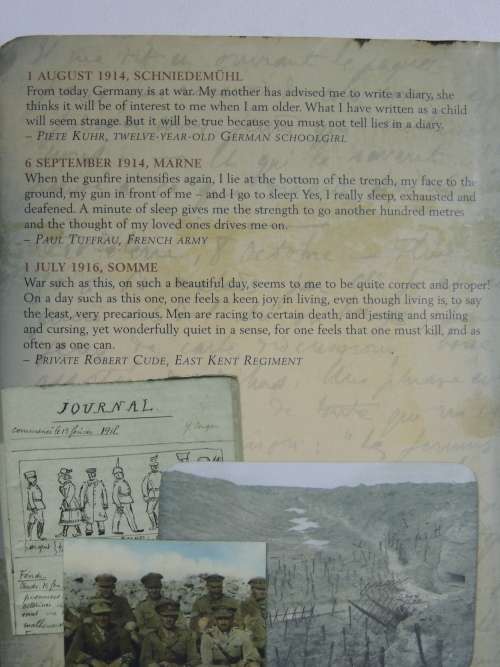 1 AUGUST 1914, SCHNIEDEMÜHL
From today Germany is at war. My mother has advised me to write a diary, she
thinks it will be of interest to me when I am older. What I have written as a child
will seem strange. But it will be true because you must not tell lies in a diary.
– PIETE KUHR, TWELVE-YEAR-OLD GERMAN SCHOOLGIRL
6 SEPTEMBER 1914, MARNE
When the gunfire intensifies again, I lie at the bottom of the trench, my face to the
ground, my gun in front of me – and I go to sleep. Yes, I really sleep, exhausted and
deafened. A minute of sleep gives me the strength to go another hundred metres
and the thought of my loved ones drives me on.
– PAUL TUFFRAU, FRENCH ARMY
1 JULY 1916, SOMME
War such as this, on such a beautiful day, seems to me to be quite correct and proper!
On a day such as this one, one feels a keen joy in living, even though living is, to say
the least, very precarious. Men are racing to certain death, and jesting and smiling
and cursing, yet wonderfully quiet in a sense, for one feels that one must kill, and as
often as one can.
– PRIVATE ROBERT CUDE, EAST KENT REGIMENT
JOURNAL